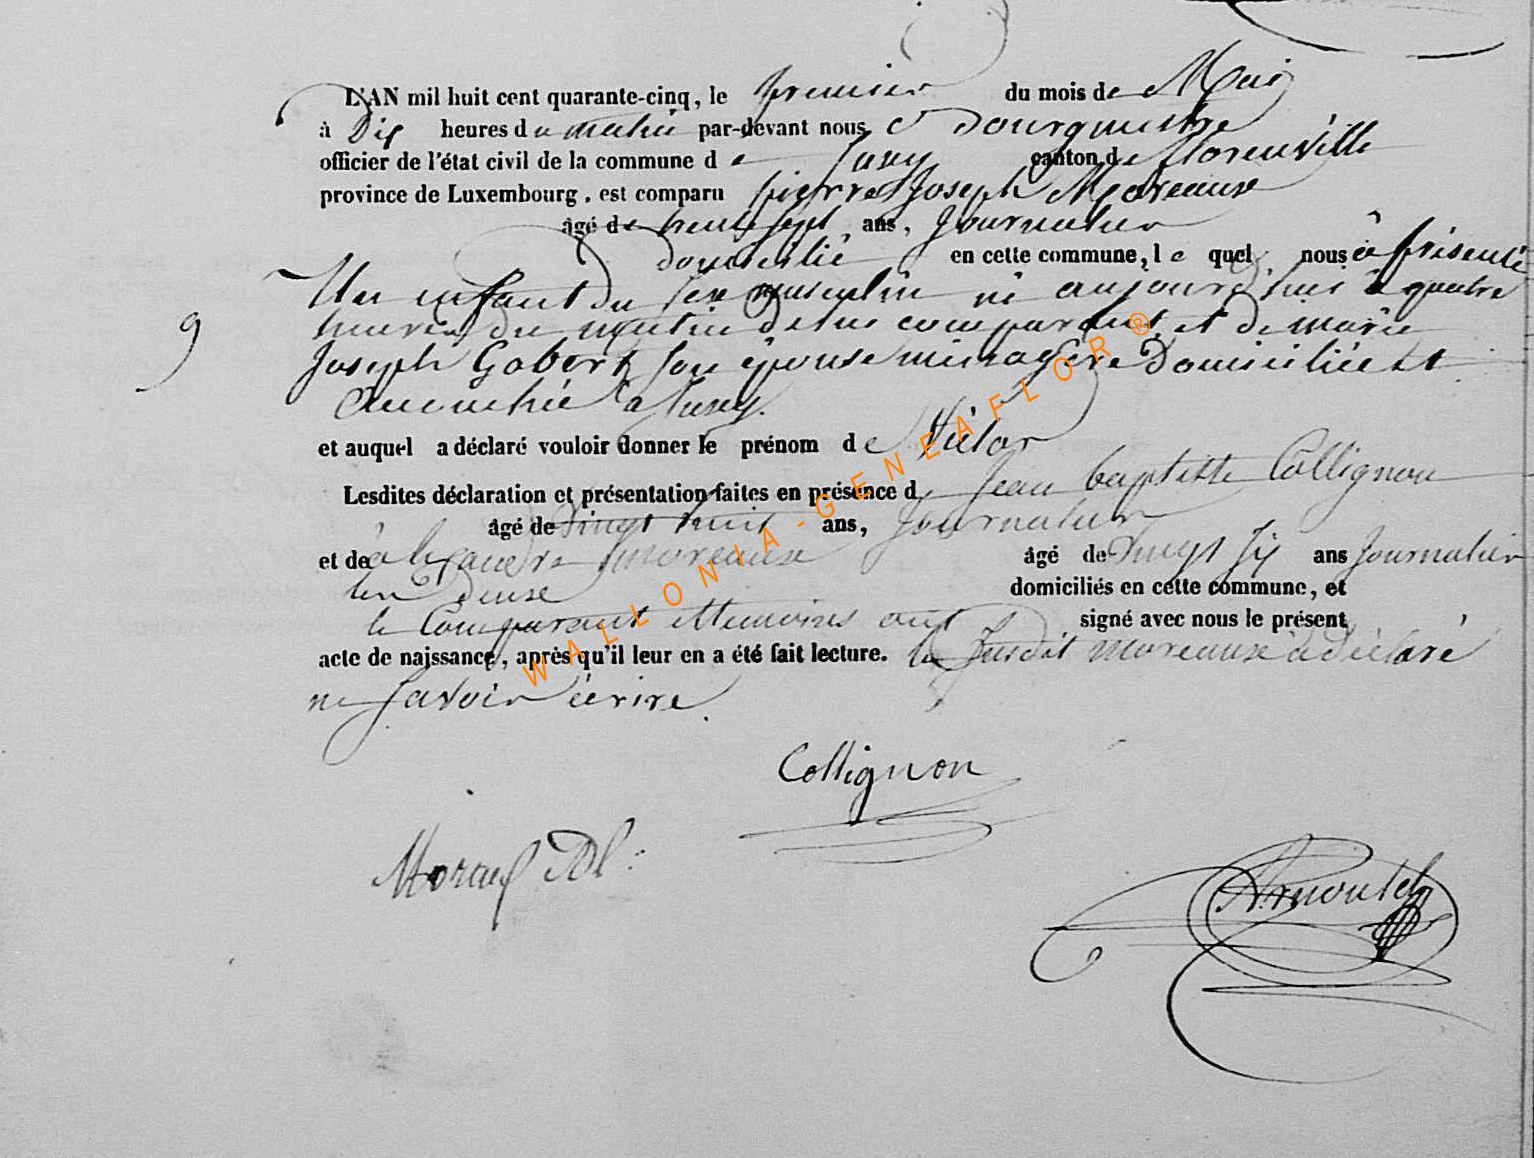 L'AN mil huit cent quarante-cinq, le premier du mois de Mai
à Dix heures du matin par-devant nous Bourgmestre
officier de l'état civil de la commune de Suxy canton de florenville
province de Luxembourg, est comparu pierre Joseph Moreaux
âgé de trente sept ans, Journalier
domicilié en cette commune, le quel nous à présenté
Un enfant du sexe masculin né aujourd'hui à quatre
heures du matin de lui comparant et de marie
9
Joseph Gobert son épouse ménagère Domiciliée et
accouchée à Suxy.
et auquel a déclaré vouloir donner le prénom de Victor
Lesdites déclaration et présentation faites en présence d Jean baptiste Collignon
âgé de vingt huit ans, Journalier
et de alexandre moreaux âgé de vingt six ans Journalier
les deux domiciliés en cette commune, et
le Comparant et temoins ont signé avec nous le présent
acte de naissance, après qu'il leur en a été fait lecture. le susdit moreaux à déclaré
ne savoir écrire.
Collignon
Moraux
Arnould
WALLONIA-GENEAFLOR®